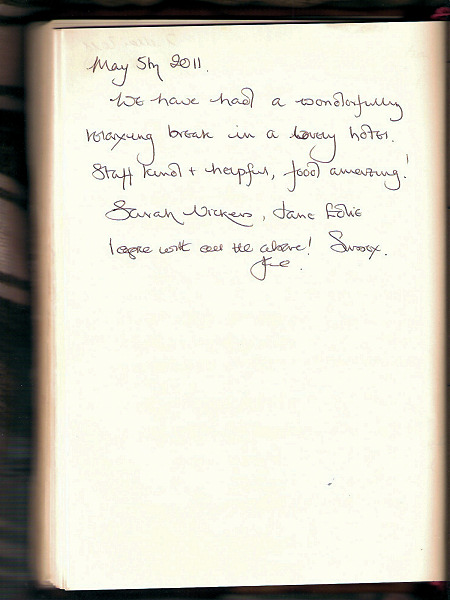 May 5th 2011.
We have had a wonderfully
relaxing break in a lovely hotel.
Staff kind + helpful, food amazing!
Sarah Vickers, Jane
I agree with all the above! Sussex.